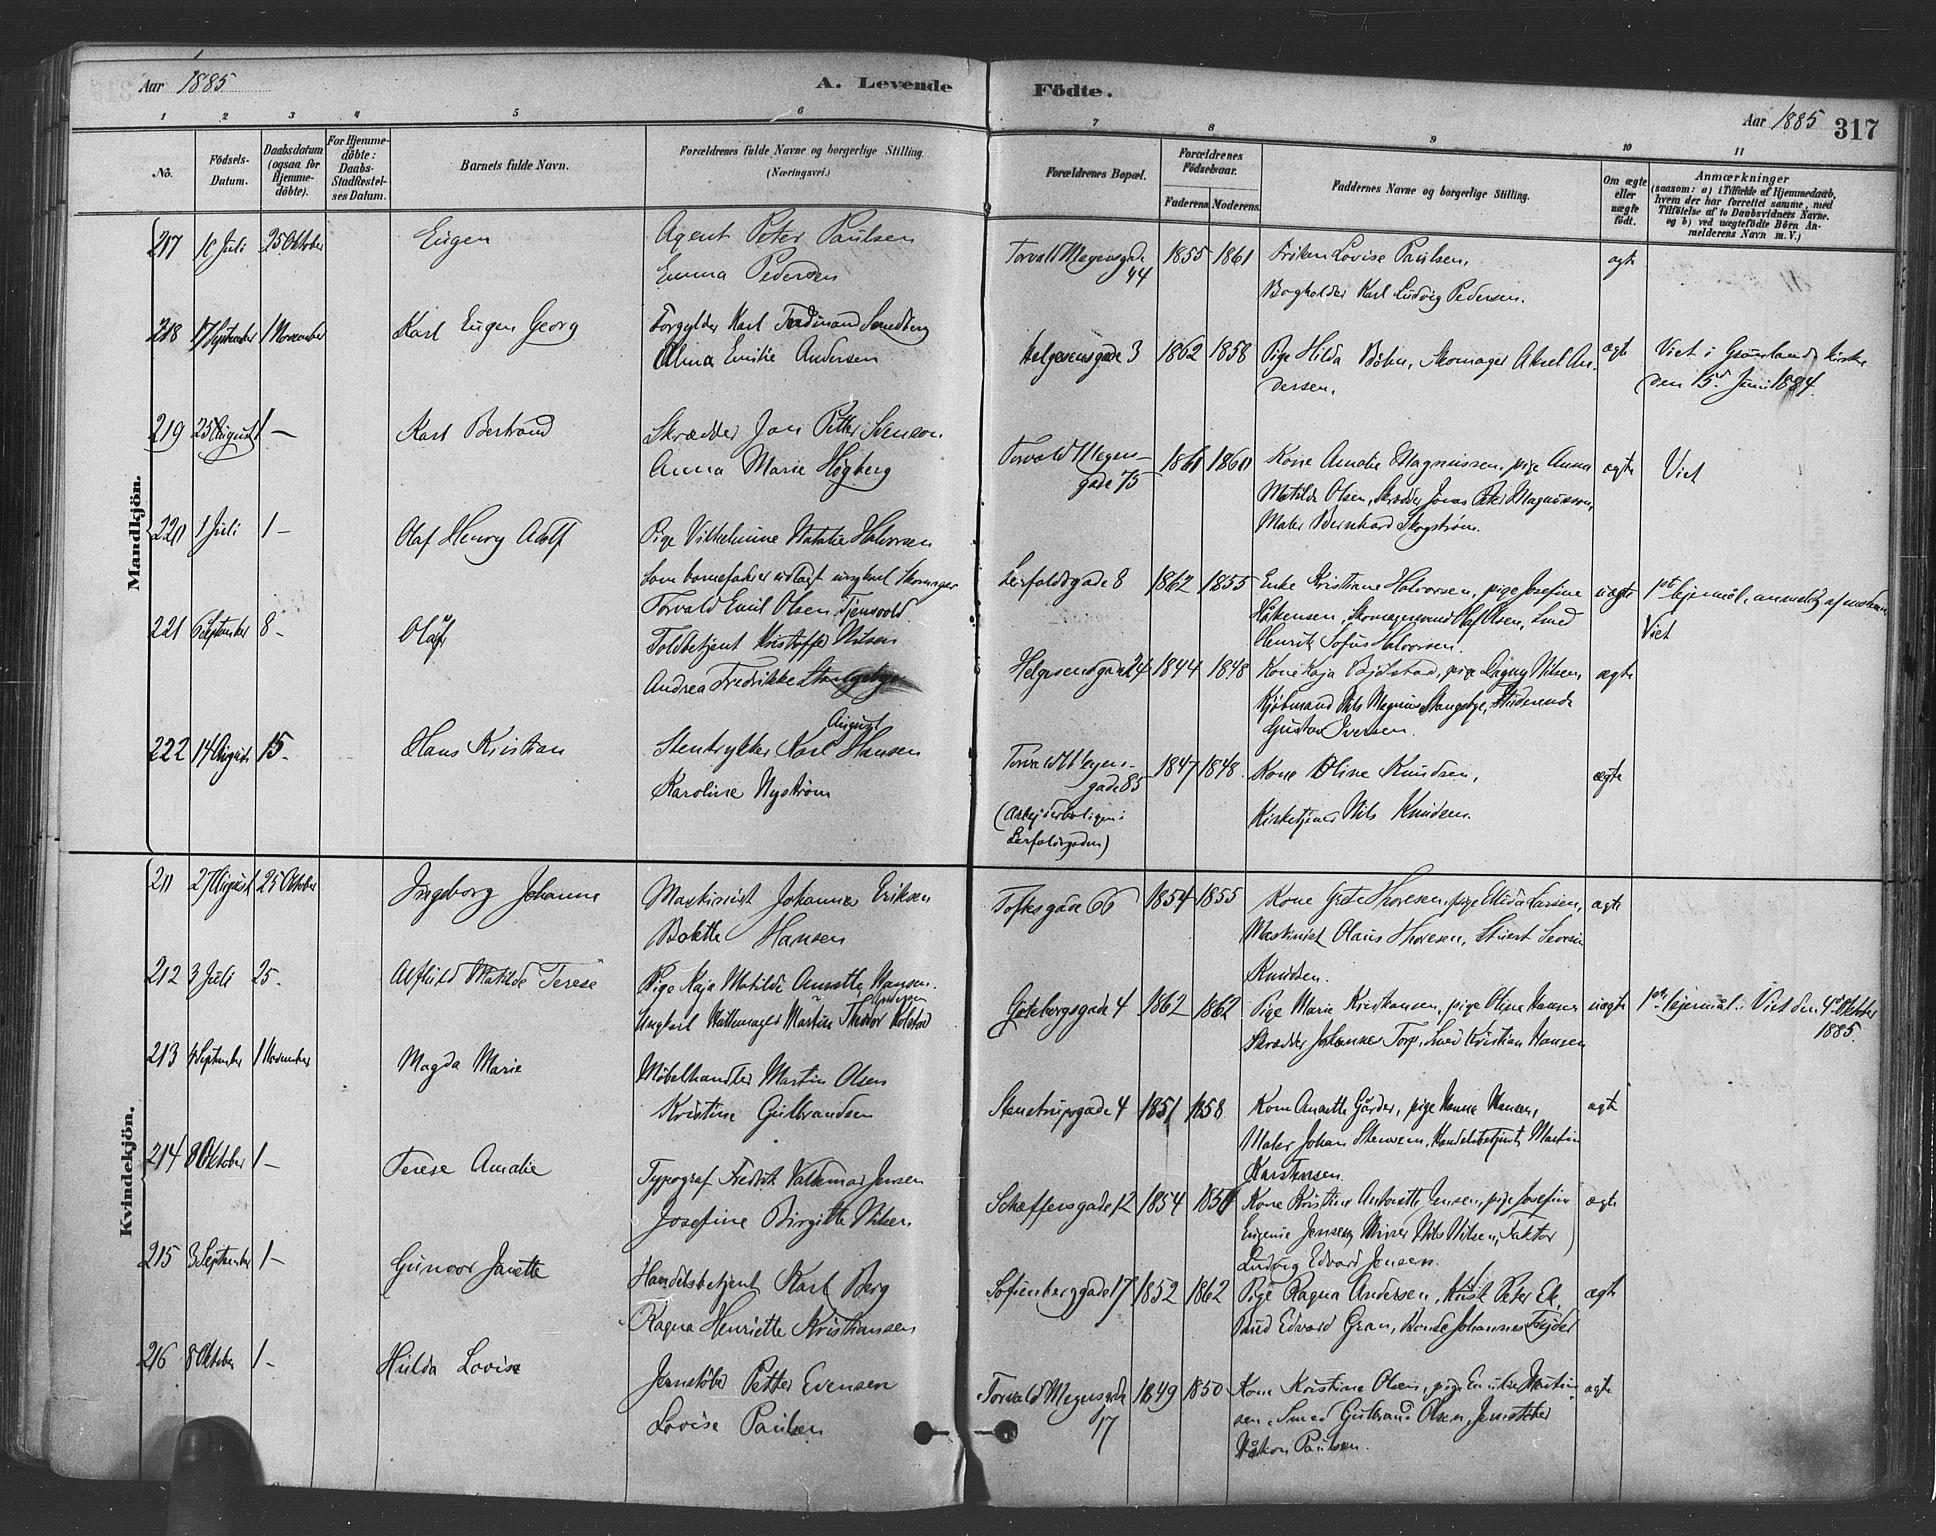 Aar 1885
A. Levende
Födte.
Aar 1885
317
1 2 3 4 5 6 7 8 9 10 11
No.
Födsels-
Datum.
Daabsdatum
(ogsaa for
Hjemme-
döbte).
For Hjemme-
döbte:
Daabs-
Stadfæstel-
ses Datum.
Barnets fulde Navn.
Forældrenes fulde Navne og borgerlige Stilling.
(Næringsvei.)
Forældrenes Bopæl.
Forældrenes
Födselsaar.
Faderens Moderens
Faddernes Navne og borgerlige Stilling.
Om ægte
eller
uægte
födt.
Anmærkninger
(saasom: a) i Tilfælde af Hjemmedaab,
hvem der har forrettet samme, med
Tilföielse af to Daabsvidners Navne.
og b) ved uægtefödte Börn An-
melderens Navn m. V.)
Mandkjön.
217 10 Juli 25 Oktober Eugen Agent Peter Paulsen
Emma Pedersen
Torvald Meyersgade
44
1855 1861 Fröken Lovise Paulsen,
Bogholder Karl Ludvig Pedersen.
ægte
218 17 September 1 November Karl Eugen Georg Forgylder Karl Ferdinand Smedberg
Alma Emilie Andersen
Helgesensgade 3 1862 1858 Pige Hilda Böhn, Skomager Aksel An-
dersen.
ægte Viet i Grönlands kirke
den 15d Juni 1884.
219 25 August 1 — Karl Bertrand Skrædder Jon Petter Svenson
Anna Marie Högberg
Torvald Meyers-
gade 75
1861 1860 Kone Amalie Magnussen, pige Anna
Matilde Olsen, Skrædder Jonas Peter Magnusson,
Maler Bernhard Skogström.
ægte Viet
220 1 Juli 1 — Olaf Henry Adolf Pige Vilhelmine Natalie Halvorsen
Som barnefader udlagt ungkarl Skomager
Torvald Emil Olsen Tjensvold.
Leirfaldsgade 8 1862 1855 Enke Kristiane Halvorsen, pige Josefine
Håkensen, Skomagersvend Olaf Olsen, Smed
Henrik Sofus Halvorsen.
uægte 1ste leiermål, anmeldt af moderen
Viet
221 6 September 8 - Olaf Toldbetjent Kristoffer Nilsen
Andrea Fredrikke Stangebye
Helgesensgade 24 1844 1848 Kone Kaja Bjölstad, pige Dagny Nilsen,
Kjöbmand Nils Magnus Stangebye, Studerende
Gustav Iversen.
ægte
222 14 August 15. Olaus Kristian Stentrykker Karl August Hansen
Karoline Nyström
Torvald Meyers-
gade 85
(Arbejderboligen i
Leirfaldsgaden)
1847 1848. Kone Oline Knudsen,
Kirketjener Nils Knudsen.
ægte
Kvindekjön.
211 27 August 25 Oktober Ingeborg Johanne Maskinist Johannes Eriksen
Bolette Hansen
Toftesgade 66 1854 1855 Kone Grete Thoresen, pige Elida Larsen,
Maskinist Olaus Thoresen, Stuert Severin
Knudsen.
ægte
212 3 Juli 25. Alfhild Matilde Terese Pige Kaja Matilde Annette Hansen.
Ungkarl Hattemager Martin Theodor Andersen Kolstad
Göteborgsgade 4 1862 1862 Pige Marie Kristiansen, pige Oline Hansen
Skrædder Johannes Torp, Smed Kristian Hansen
uægte 1ste leiermål. Viet den 4de Oktober
1885.
213 4 September 1 November Magda Marie Möbelhandler Martin Olsen
Kristine Gulbrandsen
Stenstrupsgade 4 1851 1858 Kone Annette Gårder, pige Hanna Hansen,
Maler Johan Stensen, Handelsbetjent Martin
Karstensen.
ægte
214 8 Oktober 1 — Terese Amalie Typograf Fredrik Valdemar Jensen
Josefine Birgitte Nilsen
Schæffersgade 12 1854 1856 Kone Kristine Antonette Jensen, pige Josefine
Eugenie Jensen, Murer Nils Nilsen, Faktor
Ludvig Edvard Jensen.
ægte
215 3 September 1 — Gunvor Janette Handelsbetjent Karl Berg
Ragna Henriette Kristiansen
Sofienberggade 17 1852 1862 Pige Ragna Andersen, Kusk Peter Ek,
Bud Edvard Gran, Bonde Johannes Frejder
ægte
216 8 Oktober 1 — Hilda Lovise Jernstöber Petter Evensen
Lovise Paulsen
Torvald Meyersgade
17
1849 1850 Kone Kristine Olsen, pige Emilie Martin-
sen, Smed Gulbrand Olsen, Jernstöber
Håkon Paulsen.
ægte